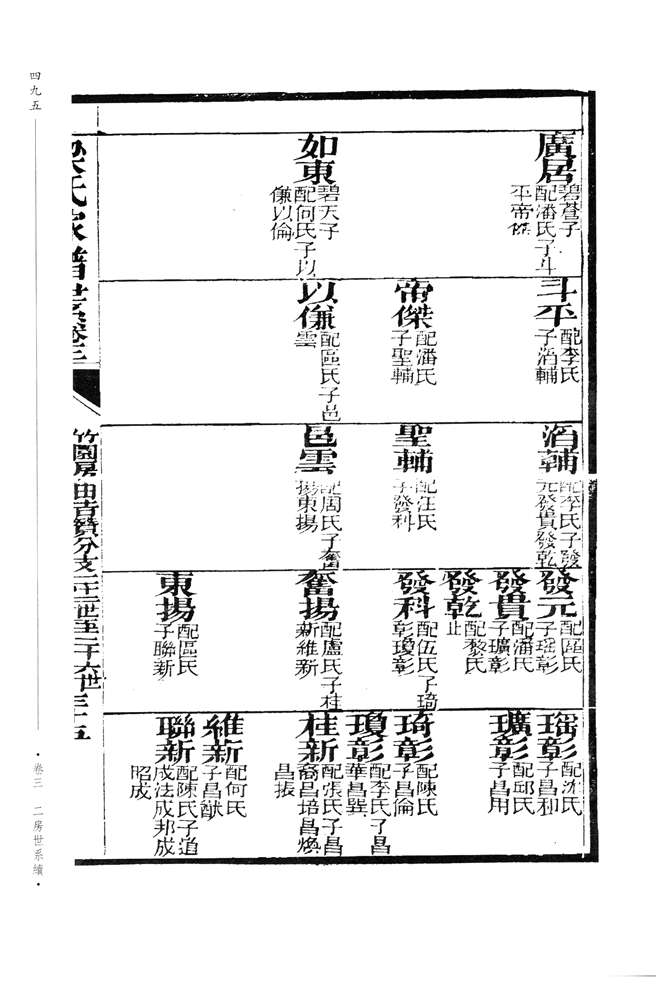 四九五
卷三 二房世系續
廣居
碧蒼子
配潘氏子斗
平帝傑
如東
碧天子
配何氏子以
傔以倫
斗平
配李氏
子滔輔
帝傑
配潘氏
子聖輔
以傔
配區氏子邑
雲
滔輔
配李氏子發
元發貴發乾
聖輔
配汪氏
子發科
邑雲
配周氏子奮
揚東揚
發元
配區氏
子瑶彰
發貴
配潘氏
子璜彰
發乾
配黎氏
止
發科
配伍氏子琦
彰瓊彰
奮揚
配盧氏子桂
新維新
東揚
配區氏
子聯新
瑶彰
配沈氏
子昌和
璜彰
配邱氏
子昌用
琦彰
配陳氏
子昌倫
瓊彰
配李氏子昌
華昌巽
桂新
配張氏子昌
裔昌培昌煥
昌振
維新
配何氏
子昌猷
聯新
配陳氏子道
成法成邦成
昭成
梁氏家譜世系卷三
竹園房由青贊分支二十二世至二十六世
三十五